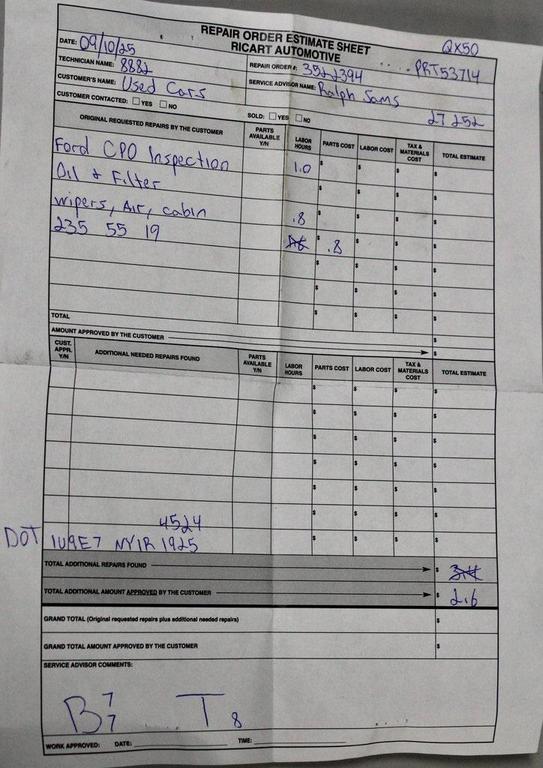 REPAIR ORDER ESTIMATE SHEET
RICART AUTOMOTIVE
QX50
DATE: 09/10/25 $ $
TECHNICIAN NAME: 8882
REPAIR ORDER #: 3522394 PRT53714
CUSTOMER'S NAME: Used Cars
SERVICE ADVISOR NAME: Ralph Sams
CUSTOMER CONTACTED: ☐ YES ☐ NO
SOLD: ☐ YES ☐ NO
27252
ORIGINAL REQUESTED REPAIRS BY THE CUSTOMER PARTS AVAILABLE Y/N LABOR HOURS PARTS COST LABOR COST TAX & MATERIALS COST TOTAL ESTIMATE
Ford CPO Inspection 1.0 $ $ $ $
Oil & Filter $ $ $ $
wipers, Air, cabin .8 $ $ $ $
235 55 19 $ .8 $ $ $
$ $ $ $
$ $ $ $
$ $ $ $
TOTAL $
AMOUNT APPROVED BY THE CUSTOMER $
CUST. APPR. Y/N ADDITIONAL NEEDED REPAIRS FOUND PARTS AVAILABLE Y/N LABOR HOURS PARTS COST LABOR COST TAX & MATERIALS COST TOTAL ESTIMATE
$ $ $ $
$ $ $ $
$ $ $ $
$ $ $ $
$ $ $ $
$ $ $ $
4524
DOT 1U9E7 NYIR 1925
TOTAL ADDITIONAL REPAIRS FOUND $
TOTAL ADDITIONAL AMOUNT APPROVED BY THE CUSTOMER $ 2.6
GRAND TOTAL (Original requested repairs plus additional needed repairs) $
GRAND TOTAL AMOUNT APPROVED BY THE CUSTOMER $
SERVICE ADVISOR COMMENTS:
B 7 7 T 8
WORK APPROVED: DATE: TIME: